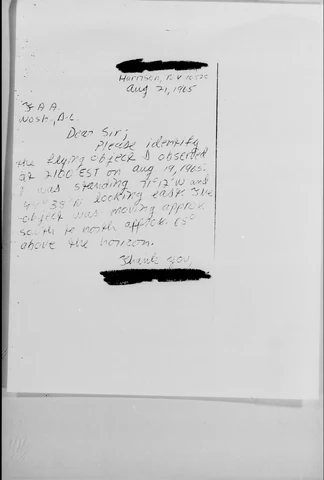 Harrison, N.Y. 10528
Aug 21, 1965
F A A.
Wash., D.C.
Dear Sir;
Please identify
the flying object I observed
at 2100 EST on Aug 19, 1965.
I was standing 71° 12' W and
38' N looking east. The
object was moving approx.
south to north approx. 65°
above the horizon.
Thank you,